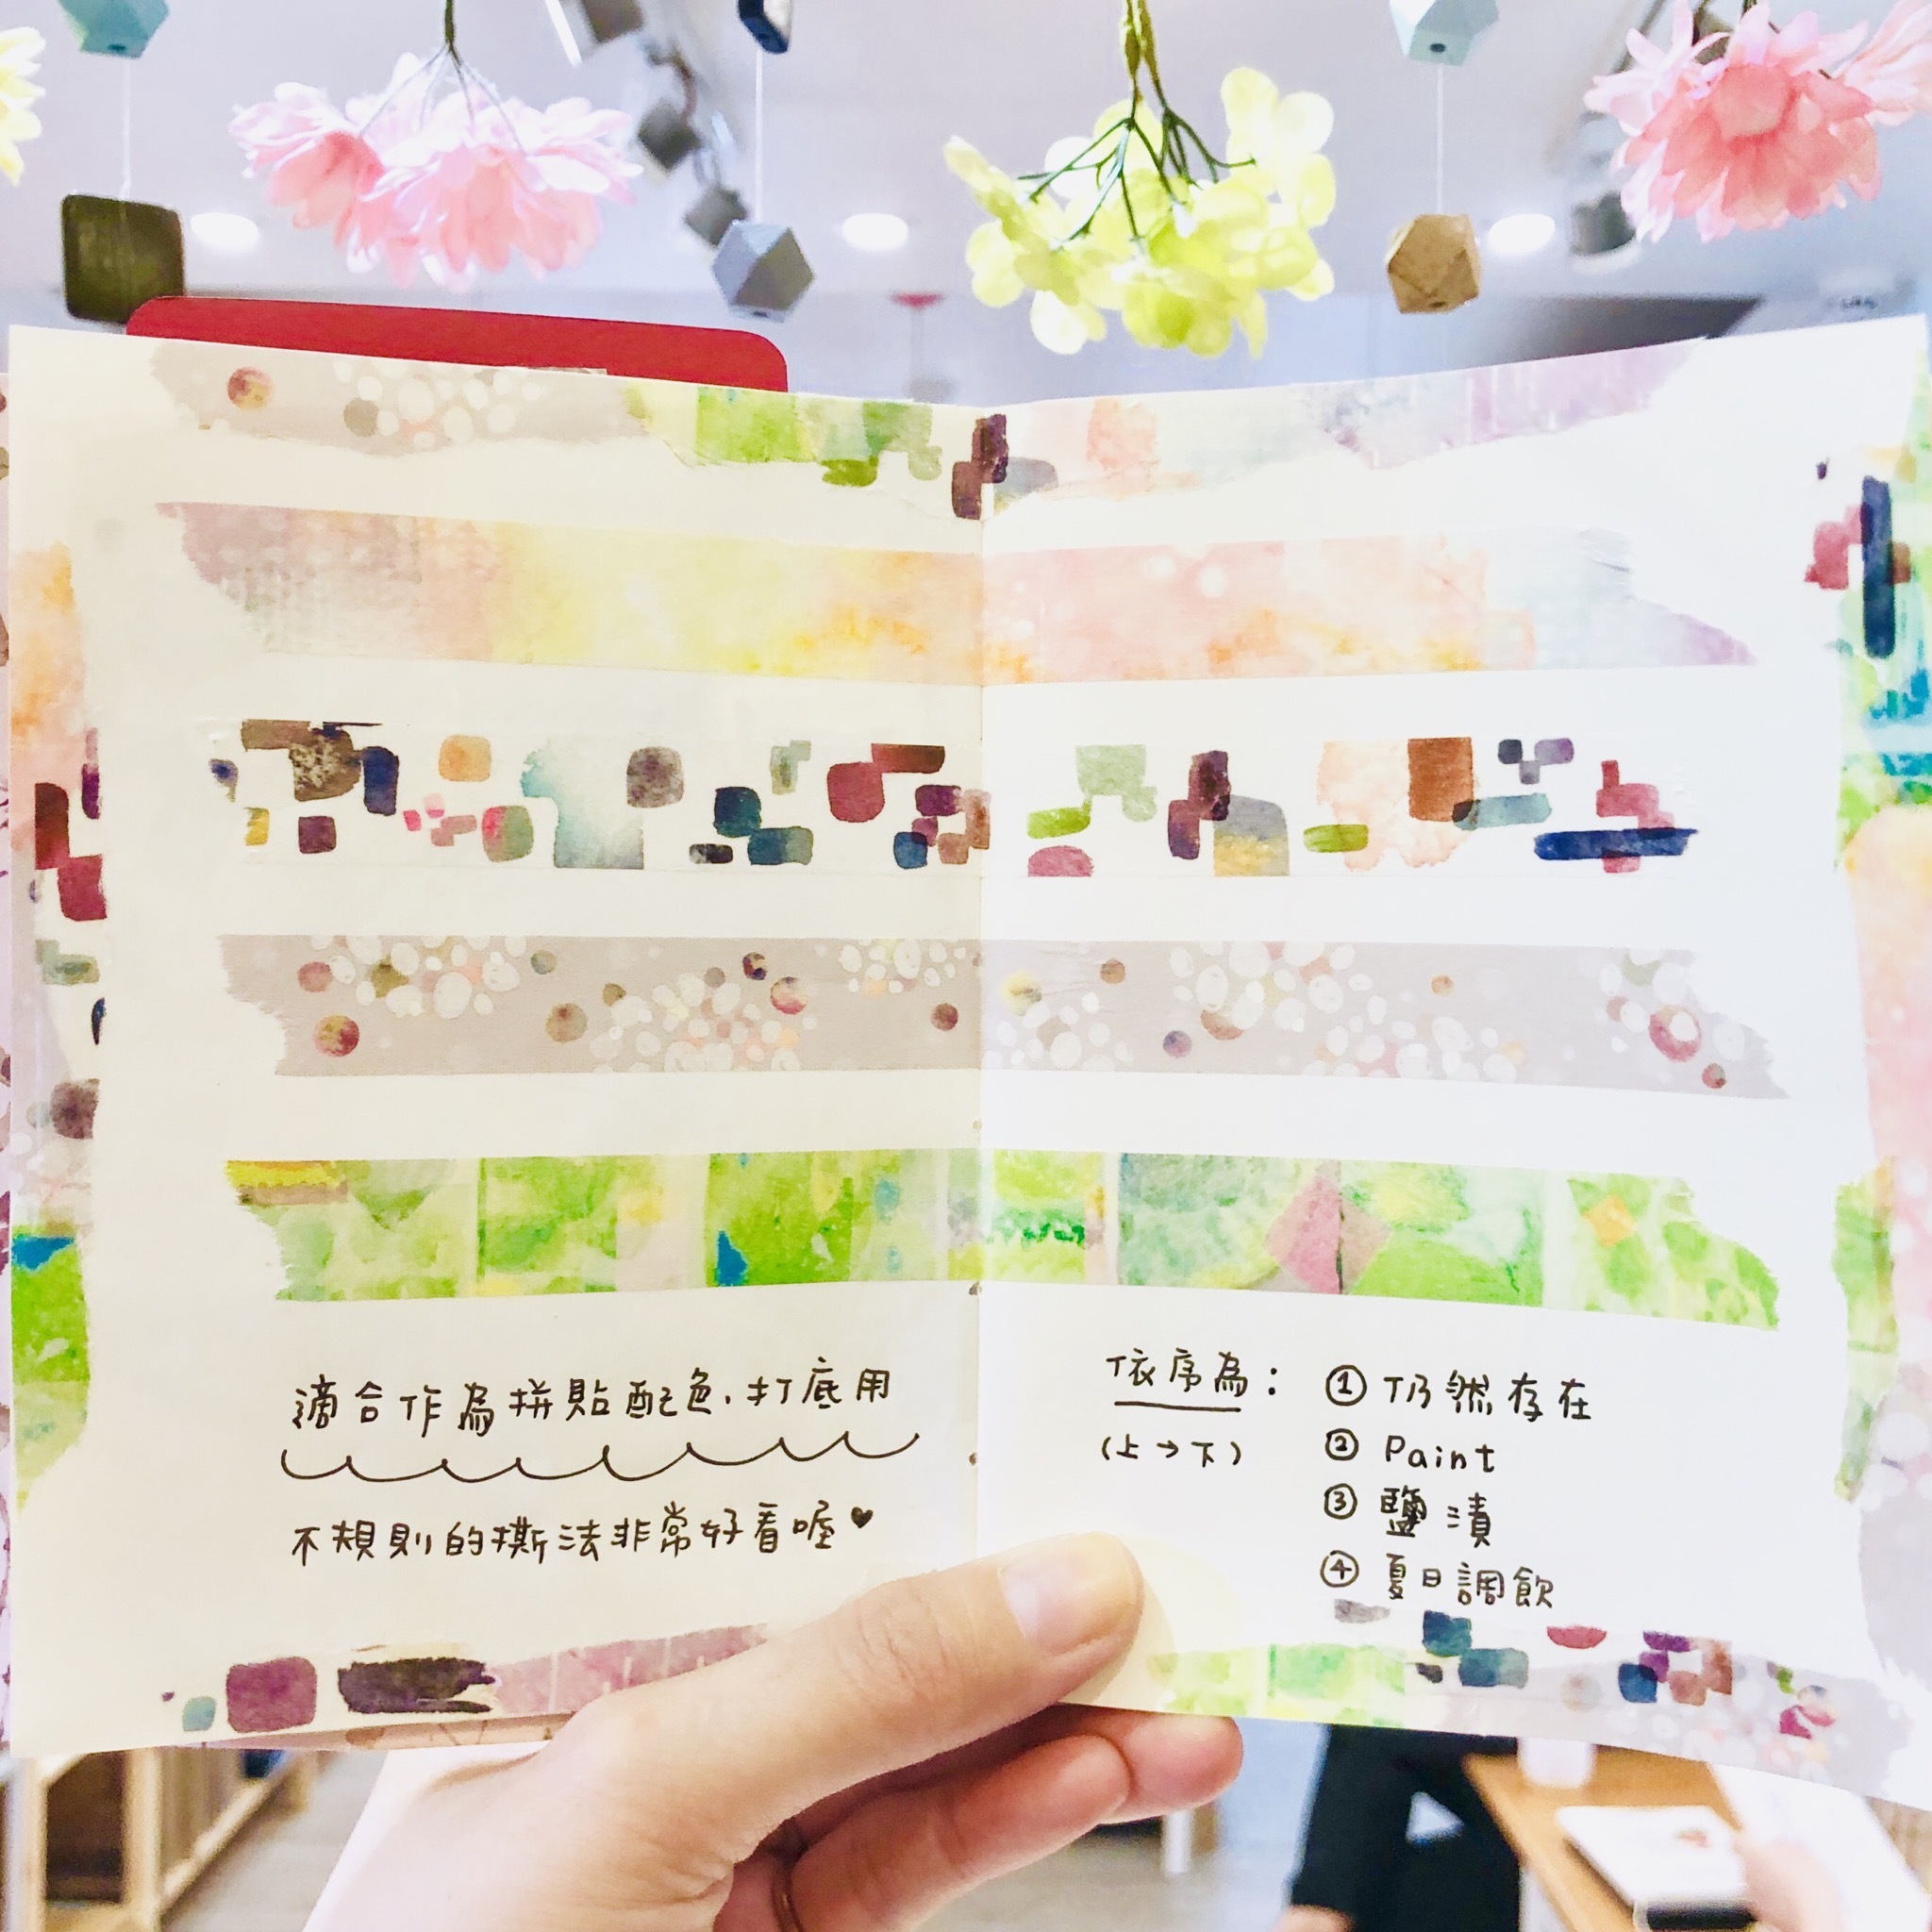 適合作為拼貼配色、打底用
不規則的撕法非常好看喔♥
依序為：
(上→下)
① 仍然存在
② Paint
③ 鹽漬
④ 夏日調飲